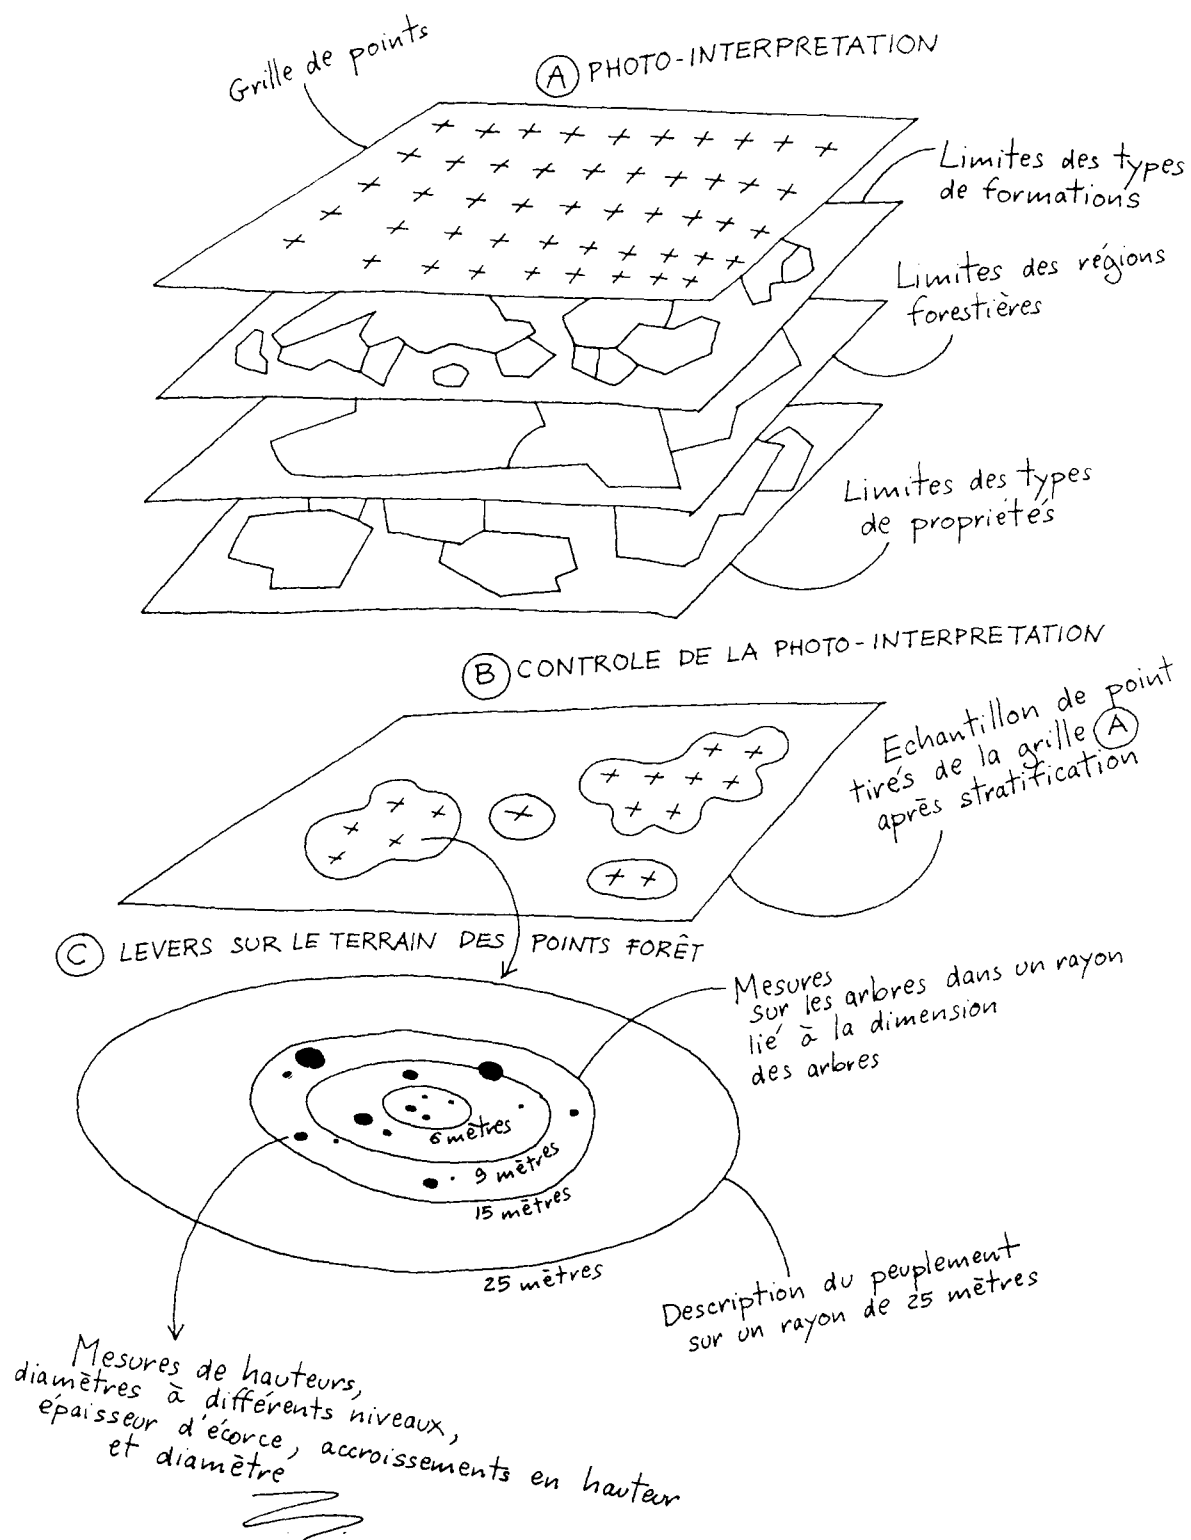 Grille de points
A PHOTO-INTERPRETATION
Limites des types
de formations
Limites des régions
forestières
Limites des types
de propriétés
B CONTROLE DE LA PHOTO-INTERPRETATION
Echantillon de point
tirés de la grille A
après stratification
C LEVERS SUR LE TERRAIN DES POINTS FORÊT
Mesures
sur les arbres dans un rayon
lié à la dimension
des arbres
6 mètres
9 mètres
15 mètres
25 mètres
Description du peuplement
sur un rayon de 25 mètres
Mesures de hauteurs,
diamètres à différents niveaux,
épaisseur d'écorce, accroissements en hauteur
et diamètre